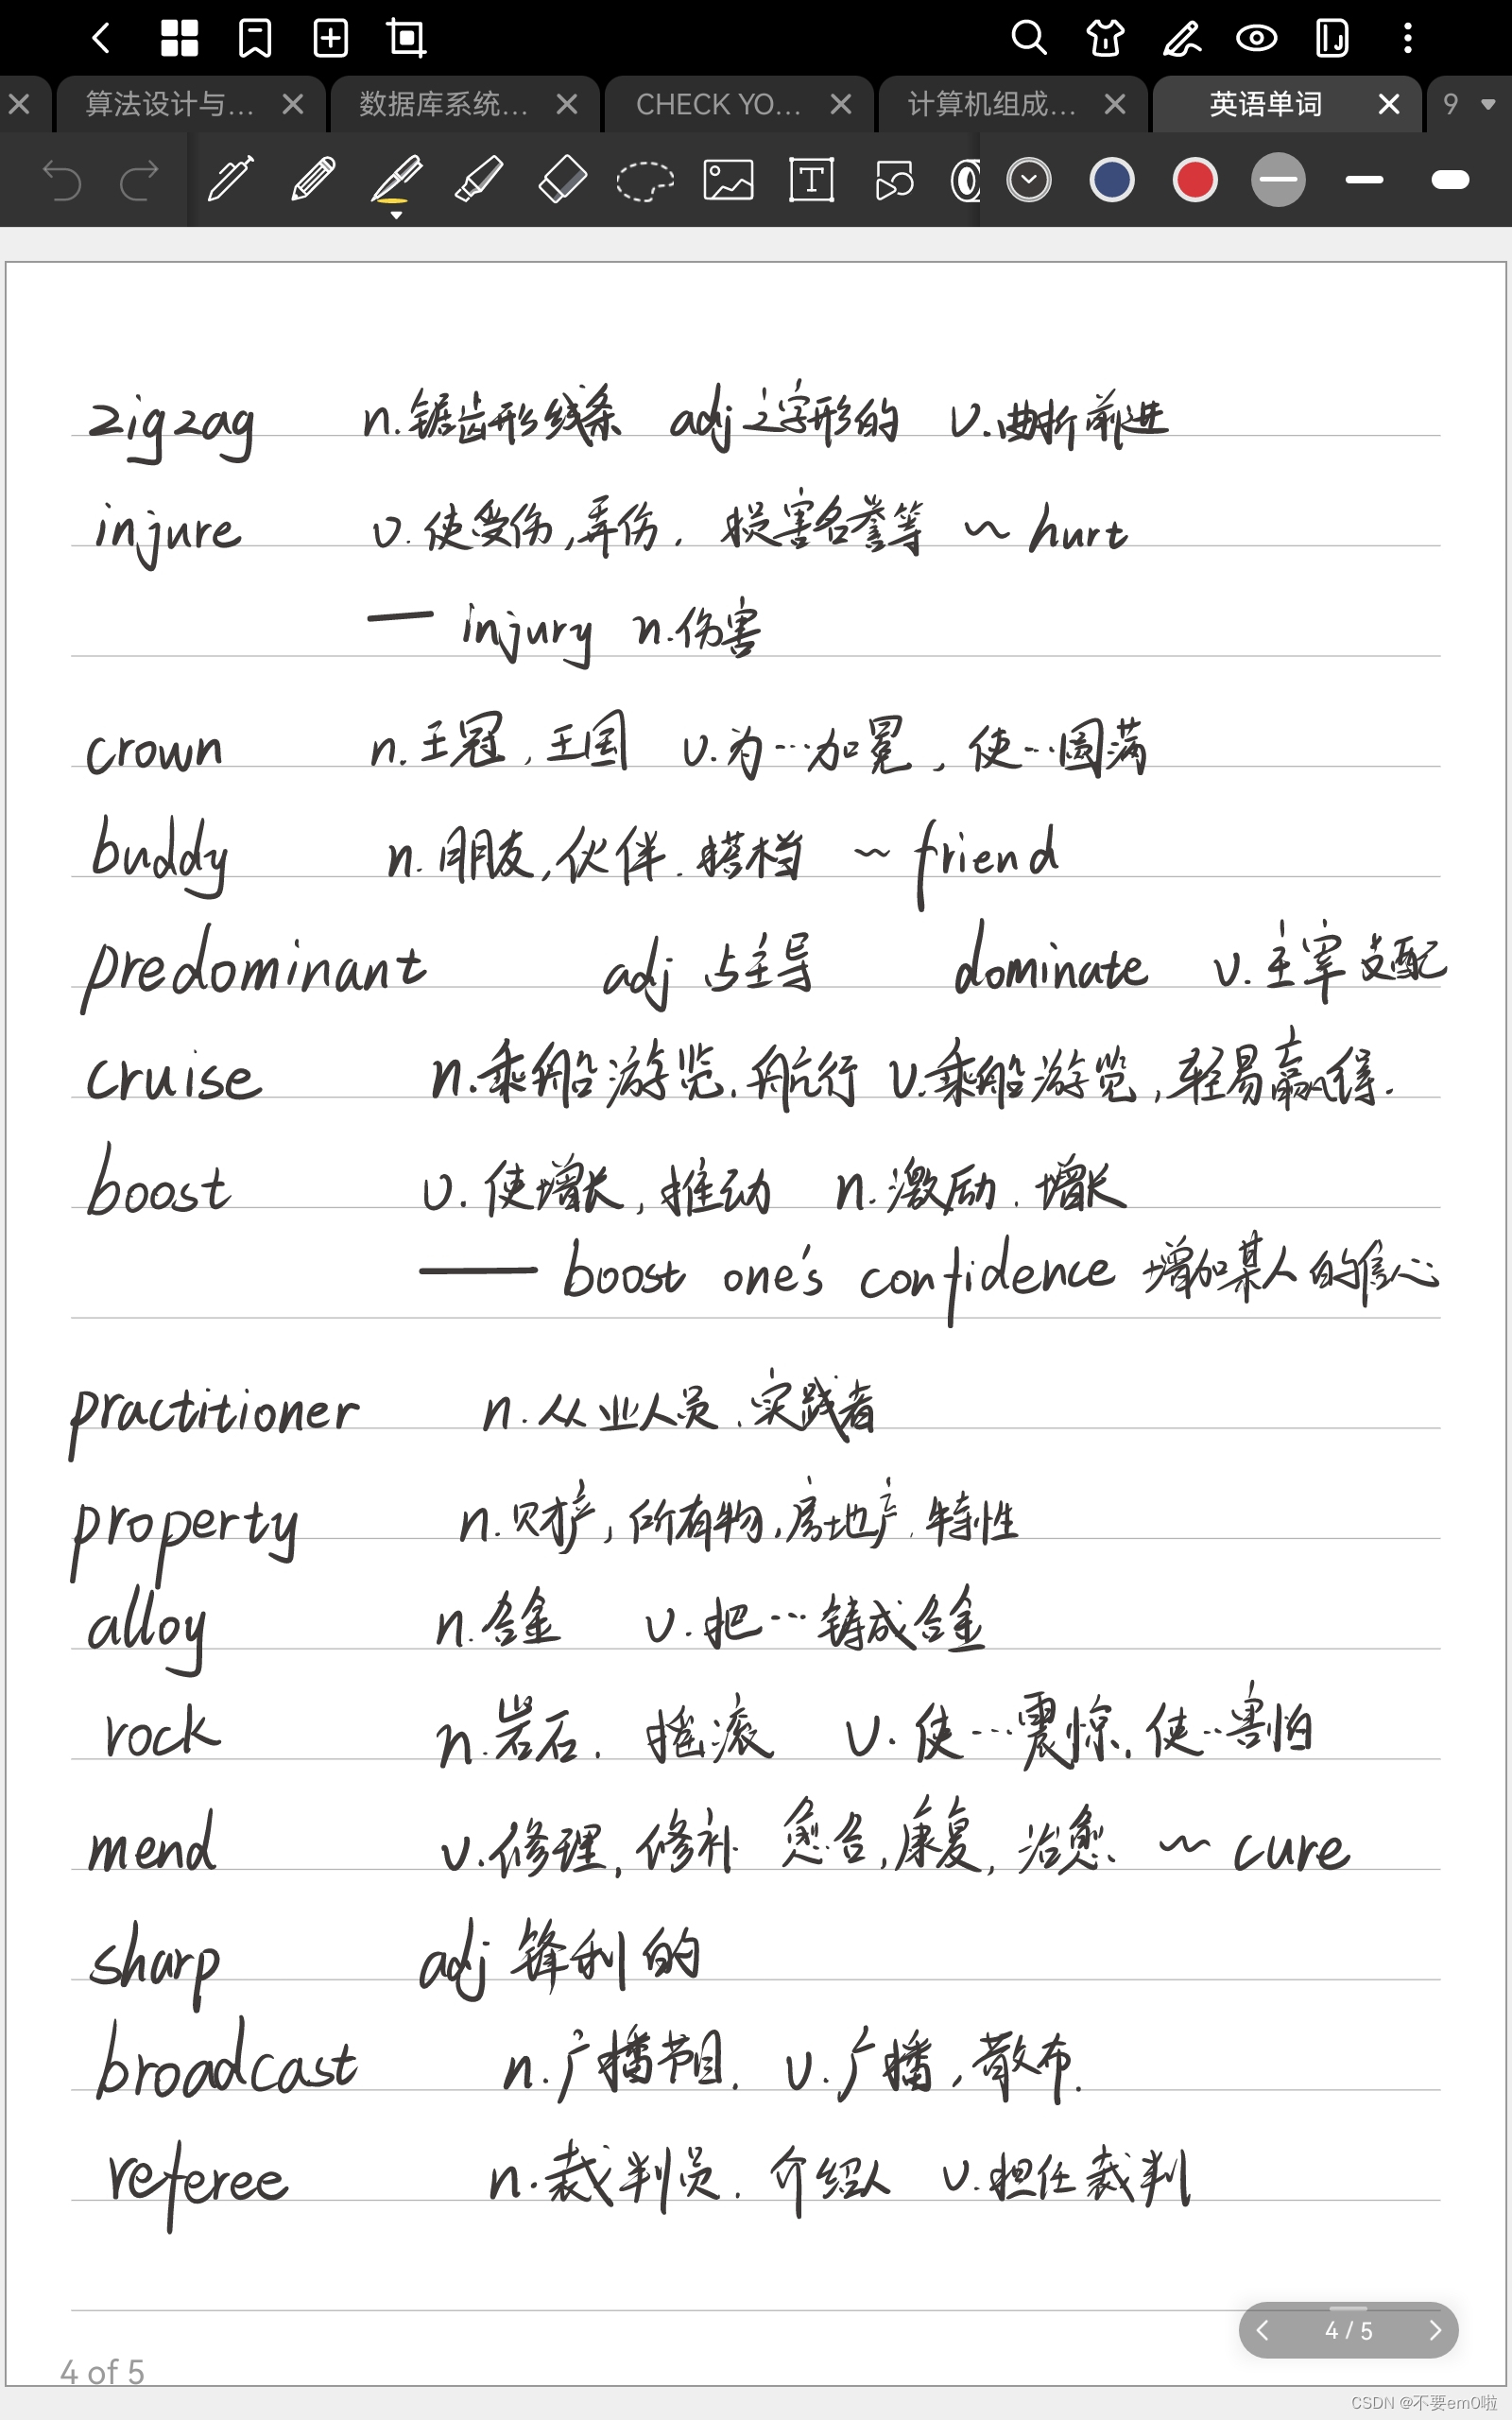 算法设计与... 数据库系统... CHECK YO... 计算机组成... 英语单词 9
zigzag n.锯齿形线条 adj之字形的 v.曲折前进
injure v.使受伤,弄伤, 损害名誉等 ~ hurt
— injury n.伤害
crown n.王冠,王国 v.为…加冕,使…圆满
buddy n.朋友,伙伴.搭档 ~ friend
predominant adj占主导 dominate v.主宰 支配
cruise n.乘船游览.航行 v.乘船游览,轻易赢得.
boost v.使增长,推动 n.激励.增长
— boost one's confidence 增加某人的信心
practitioner n.从业人员.实践者
property n.财产,所有物,房地产.特性
alloy n.合金 v.把…铸成合金
rock n.岩石. 摇滚 v.使…震惊.使…害怕
mend v.修理,修补 愈合,康复,治愈. ~ cure
sharp adj锋利的
broadcast n.广播节目. v.广播,散布.
referee n.裁判员. 介绍人 v.担任裁判
4 / 5
4 of 5
CSDN @不要em0啦